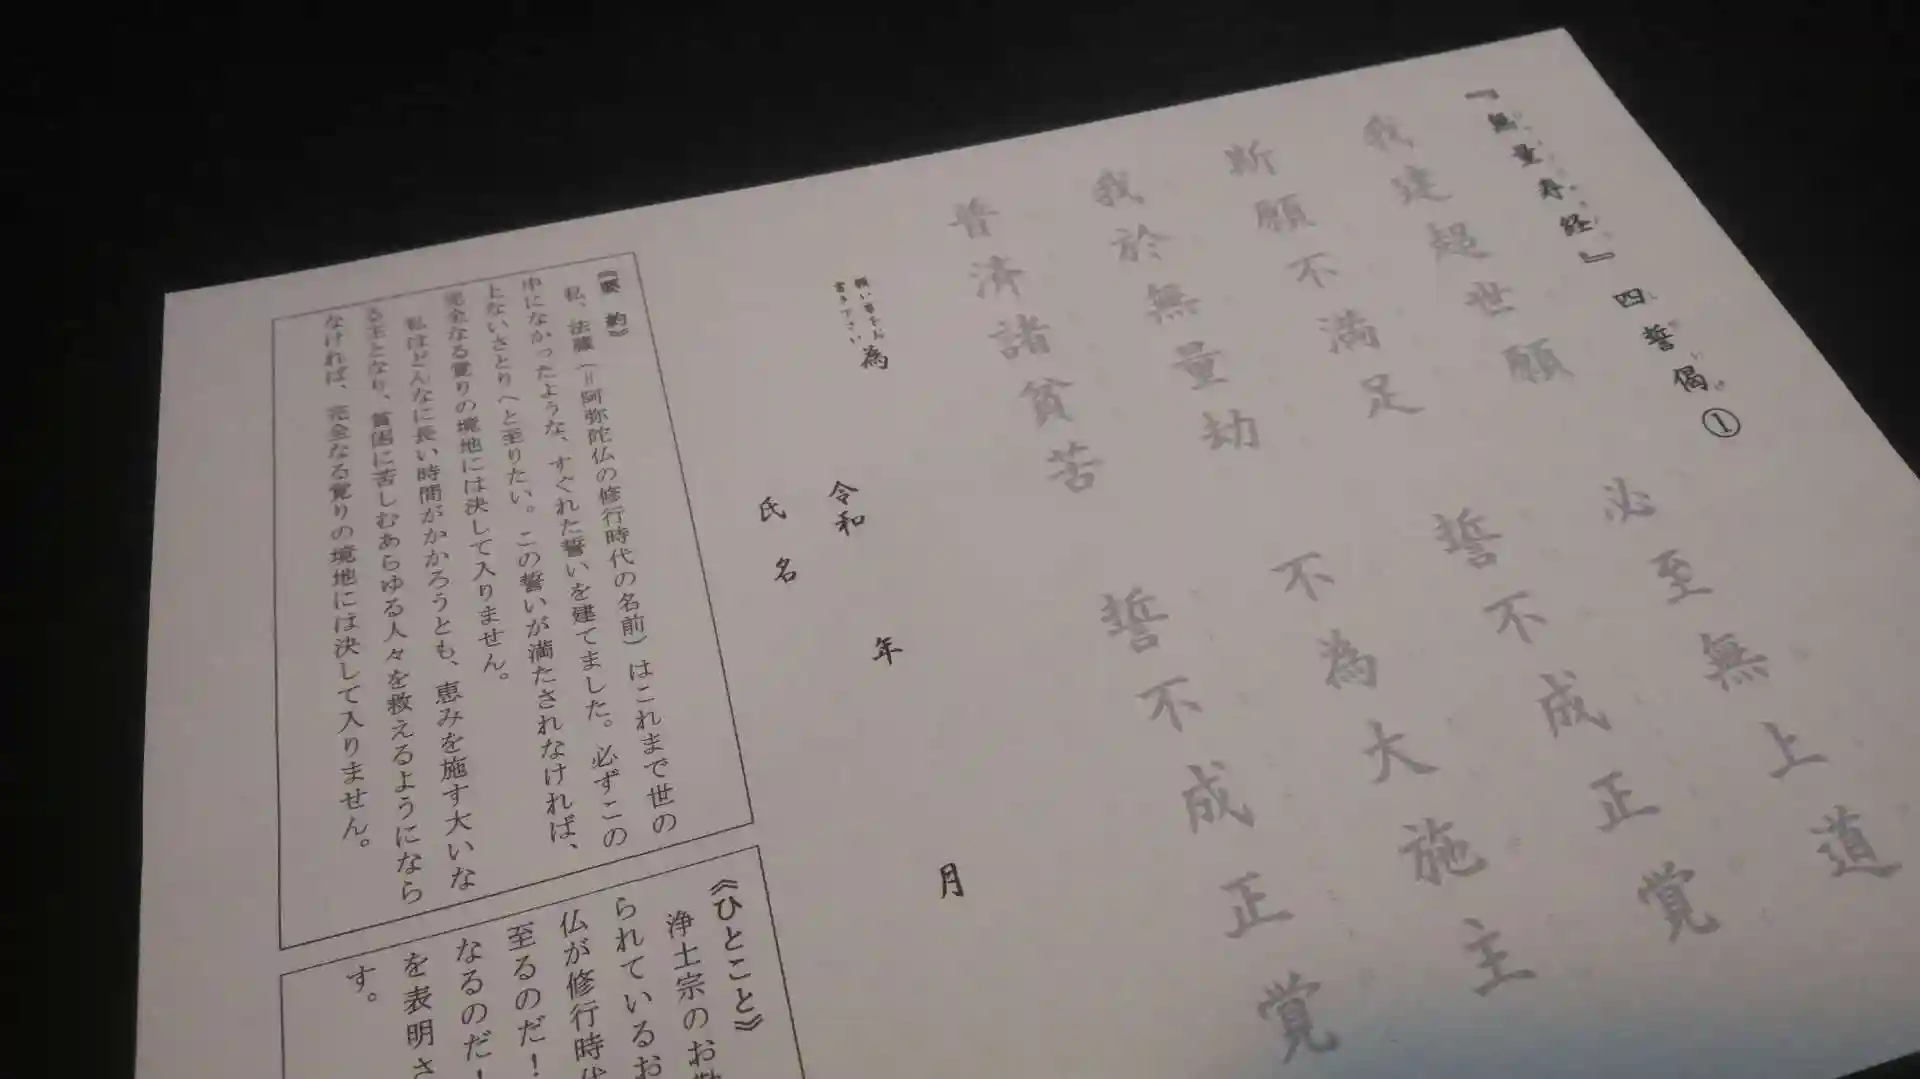 『無量寿経』四誓偈①
我建超世願 必至無上道
斯願不満足 誓不成正覚
我於無量劫 不為大施主
普済諸貧苦 誓不成正覚
為
願い事をお
書き下さい
令和 年 月
氏名
《要約》
私、法蔵（＝阿弥陀仏の修行時代の名前）はこれまで世の
中になかったような、すぐれた誓いを建てました。必ずこの
上ないさとりへと至りたい。この誓いが満たされなければ、
完全なる覚りの境地には決して入りません。
私はどんなに長い時間がかかろうとも、恵みを施す大いな
る主となり、貧困に苦しむあらゆる人々を救えるようになら
なければ、完全なる覚りの境地には決して入りません。
《ひとこと》
浄土宗のお
られているお
仏が修行時代
至るのだ！
なるのだ！
を表明さ
す。